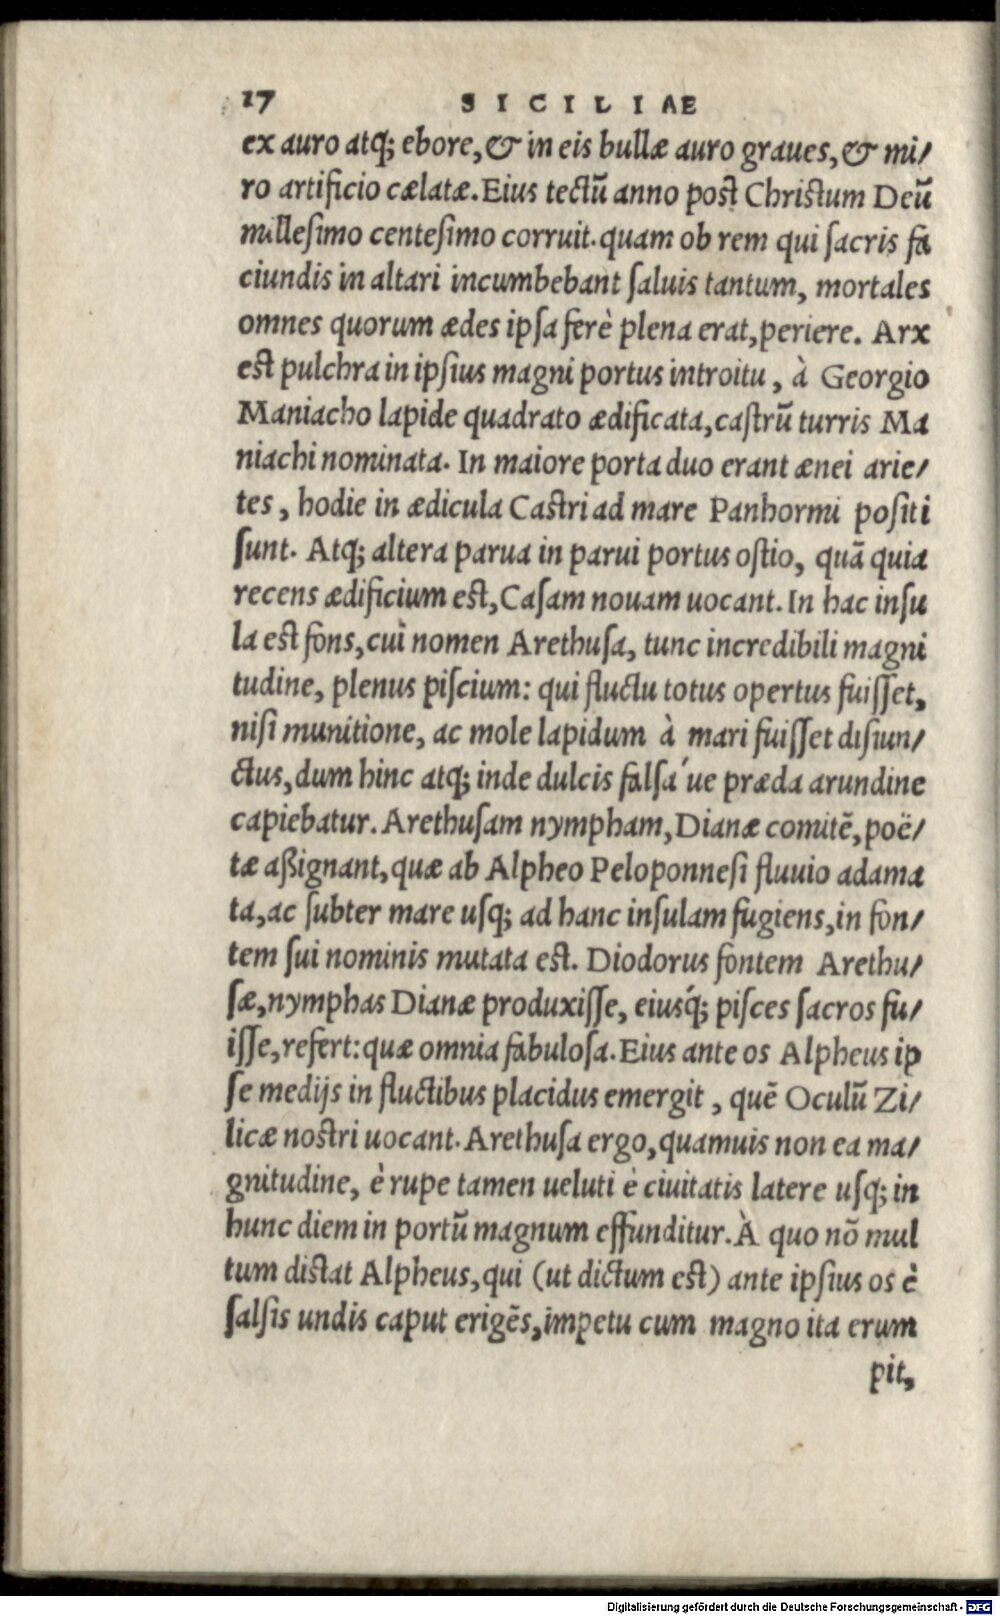 17 SICILIAE
ex auro atq; ebore, & in eis bullæ auro graues, & mi/
ro artificio cælatæ. Eius tectũ anno post Christum Deũ
millesimo centesimo corruit. quam ob rem qui sacris fa
ciundis in altari incumbebant saluis tantum, mortales
omnes quorum ædes ipsa ferè plena erat, periere. Arx
est pulchra in ipsius magni portus introitu, à Georgio
Maniacho lapide quadrato ædificata, castrũ turris Ma
niachi nominata. In maiore porta duo erant ænei arie/
tes, hodie in ædicula Castri ad mare Panhormi positi
sunt. Atq; altera parua in parui portus ostio, quã quia
recens ædificium est, Casam nouam uocant. In hac insu
la est fons, cui nomen Arethusa, tunc incredibili magni
tudine, plenus piscium: qui fluctu totus opertus fuisset,
nisi munitione, ac mole lapidum à mari fuisset disiun/
ctus, dum hinc atq; inde dulcis salsa´ue præda arundine
capiebatur. Arethusam nympham, Dianæ comitẽ, poë/
tæ aßignant, quæ ab Alpheo Peloponnesi fluuio adama
ta, ac subter mare usq; ad hanc insulam fugiens, in fon/
tem sui nominis mutata est. Diodorus fontem Arethu/
sæ, nymphas Dianæ produxisse, eiusq́; pisces sacros fu/
isse, refert: quæ omnia fabulosa. Eius ante os Alpheus ip
se medijs in fluctibus placidus emergit, quẽ Oculũ Zi/
licæ nostri uocant. Arethusa ergo, quamuis non ea ma/
gnitudine, è rupe tamen ueluti è ciuitatis latere usq; in
hunc diem in portũ magnum effunditur. À quo nõ mul
tum distat Alpheus, qui (ut dictum est) ante ipsius os è
salsis undis caput erigẽs, impetu cum magno ita erum
pit,
Digitalisierung gefördert durch die Deutsche Forschungsgemeinschaft - DFG